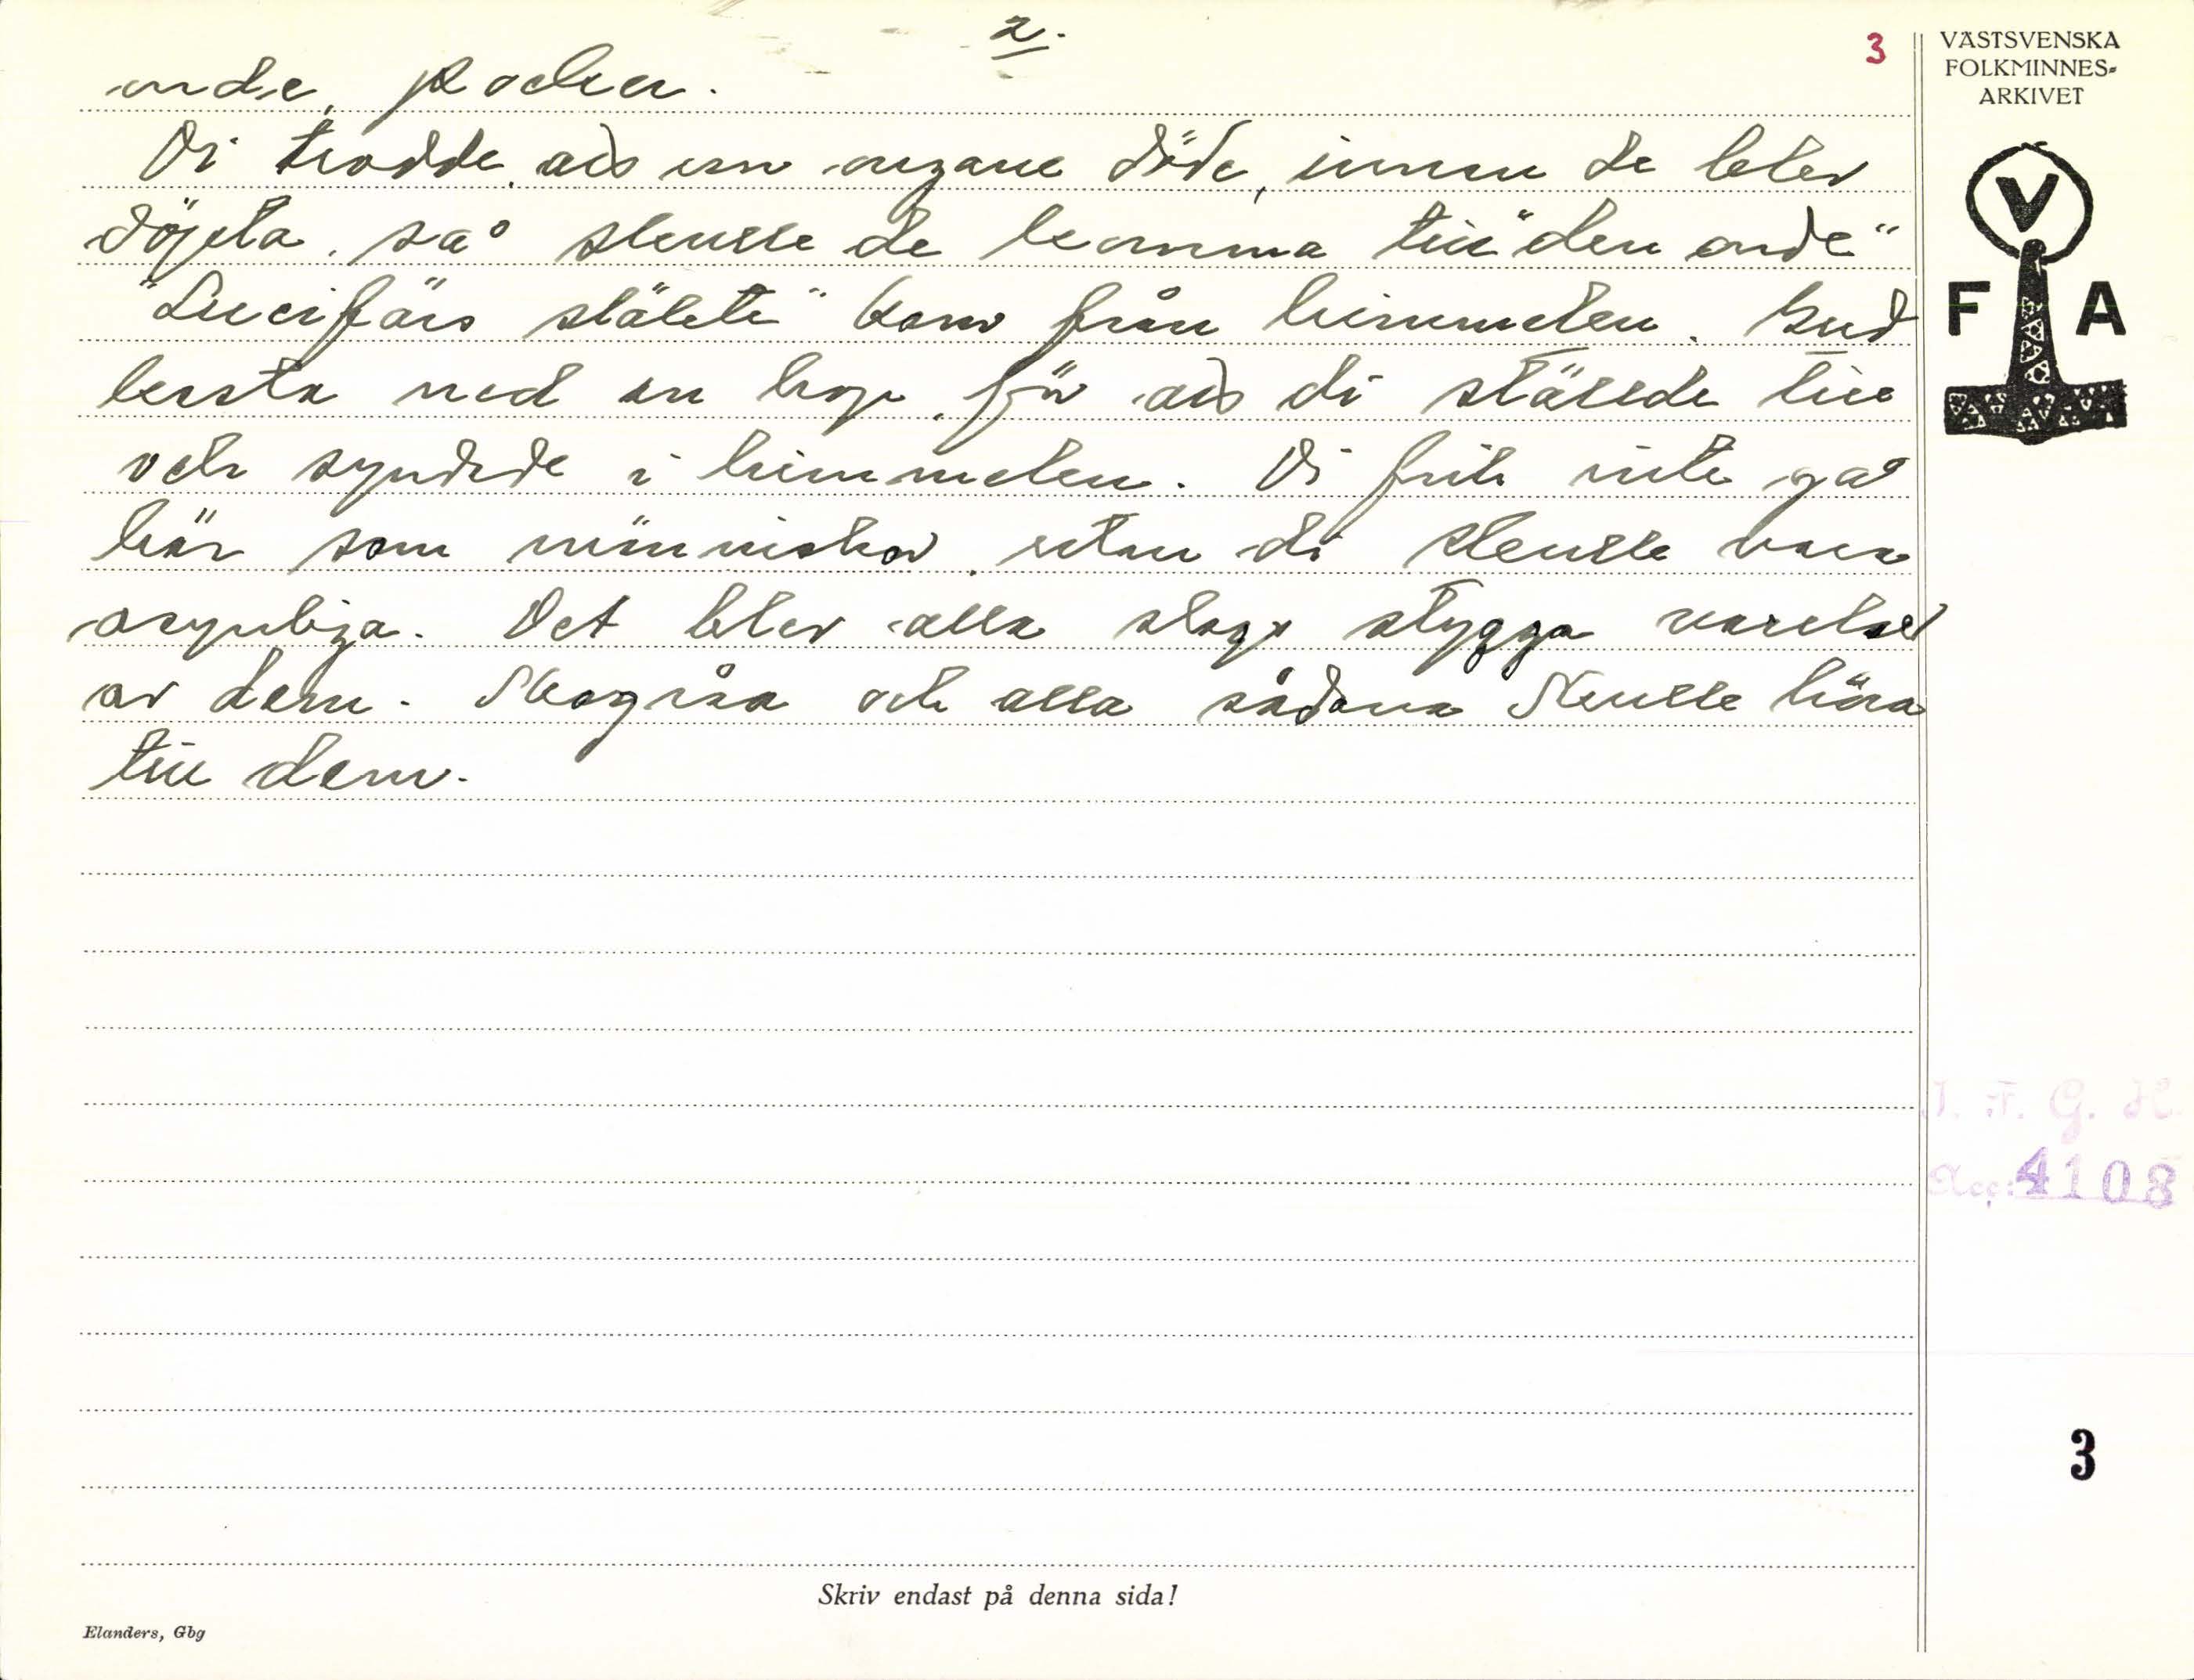 2.
3
VÄSTSVENSKA
FOLKMINNES-
ARKIVET
onde, pocker.
Di trodde, als om ongane döde, innan de blev
döpta, så skulle de komma till "den onde"
"Lucifärs släkte" kom från himmelen. Gud
kasta ned en hop, för als di ställde till
och syndde i himmelen. Di fick inte gå
här som människor, utan di skulle vara
osynliga. Det blev alla slags stygga varelser
av dem. Skogsråa och alla sådana skulle höra
till dem.
V
F A
I. F. G. H.
Acc: 4108
3
Skriv endast på denna sida!
Elanders, Gbg